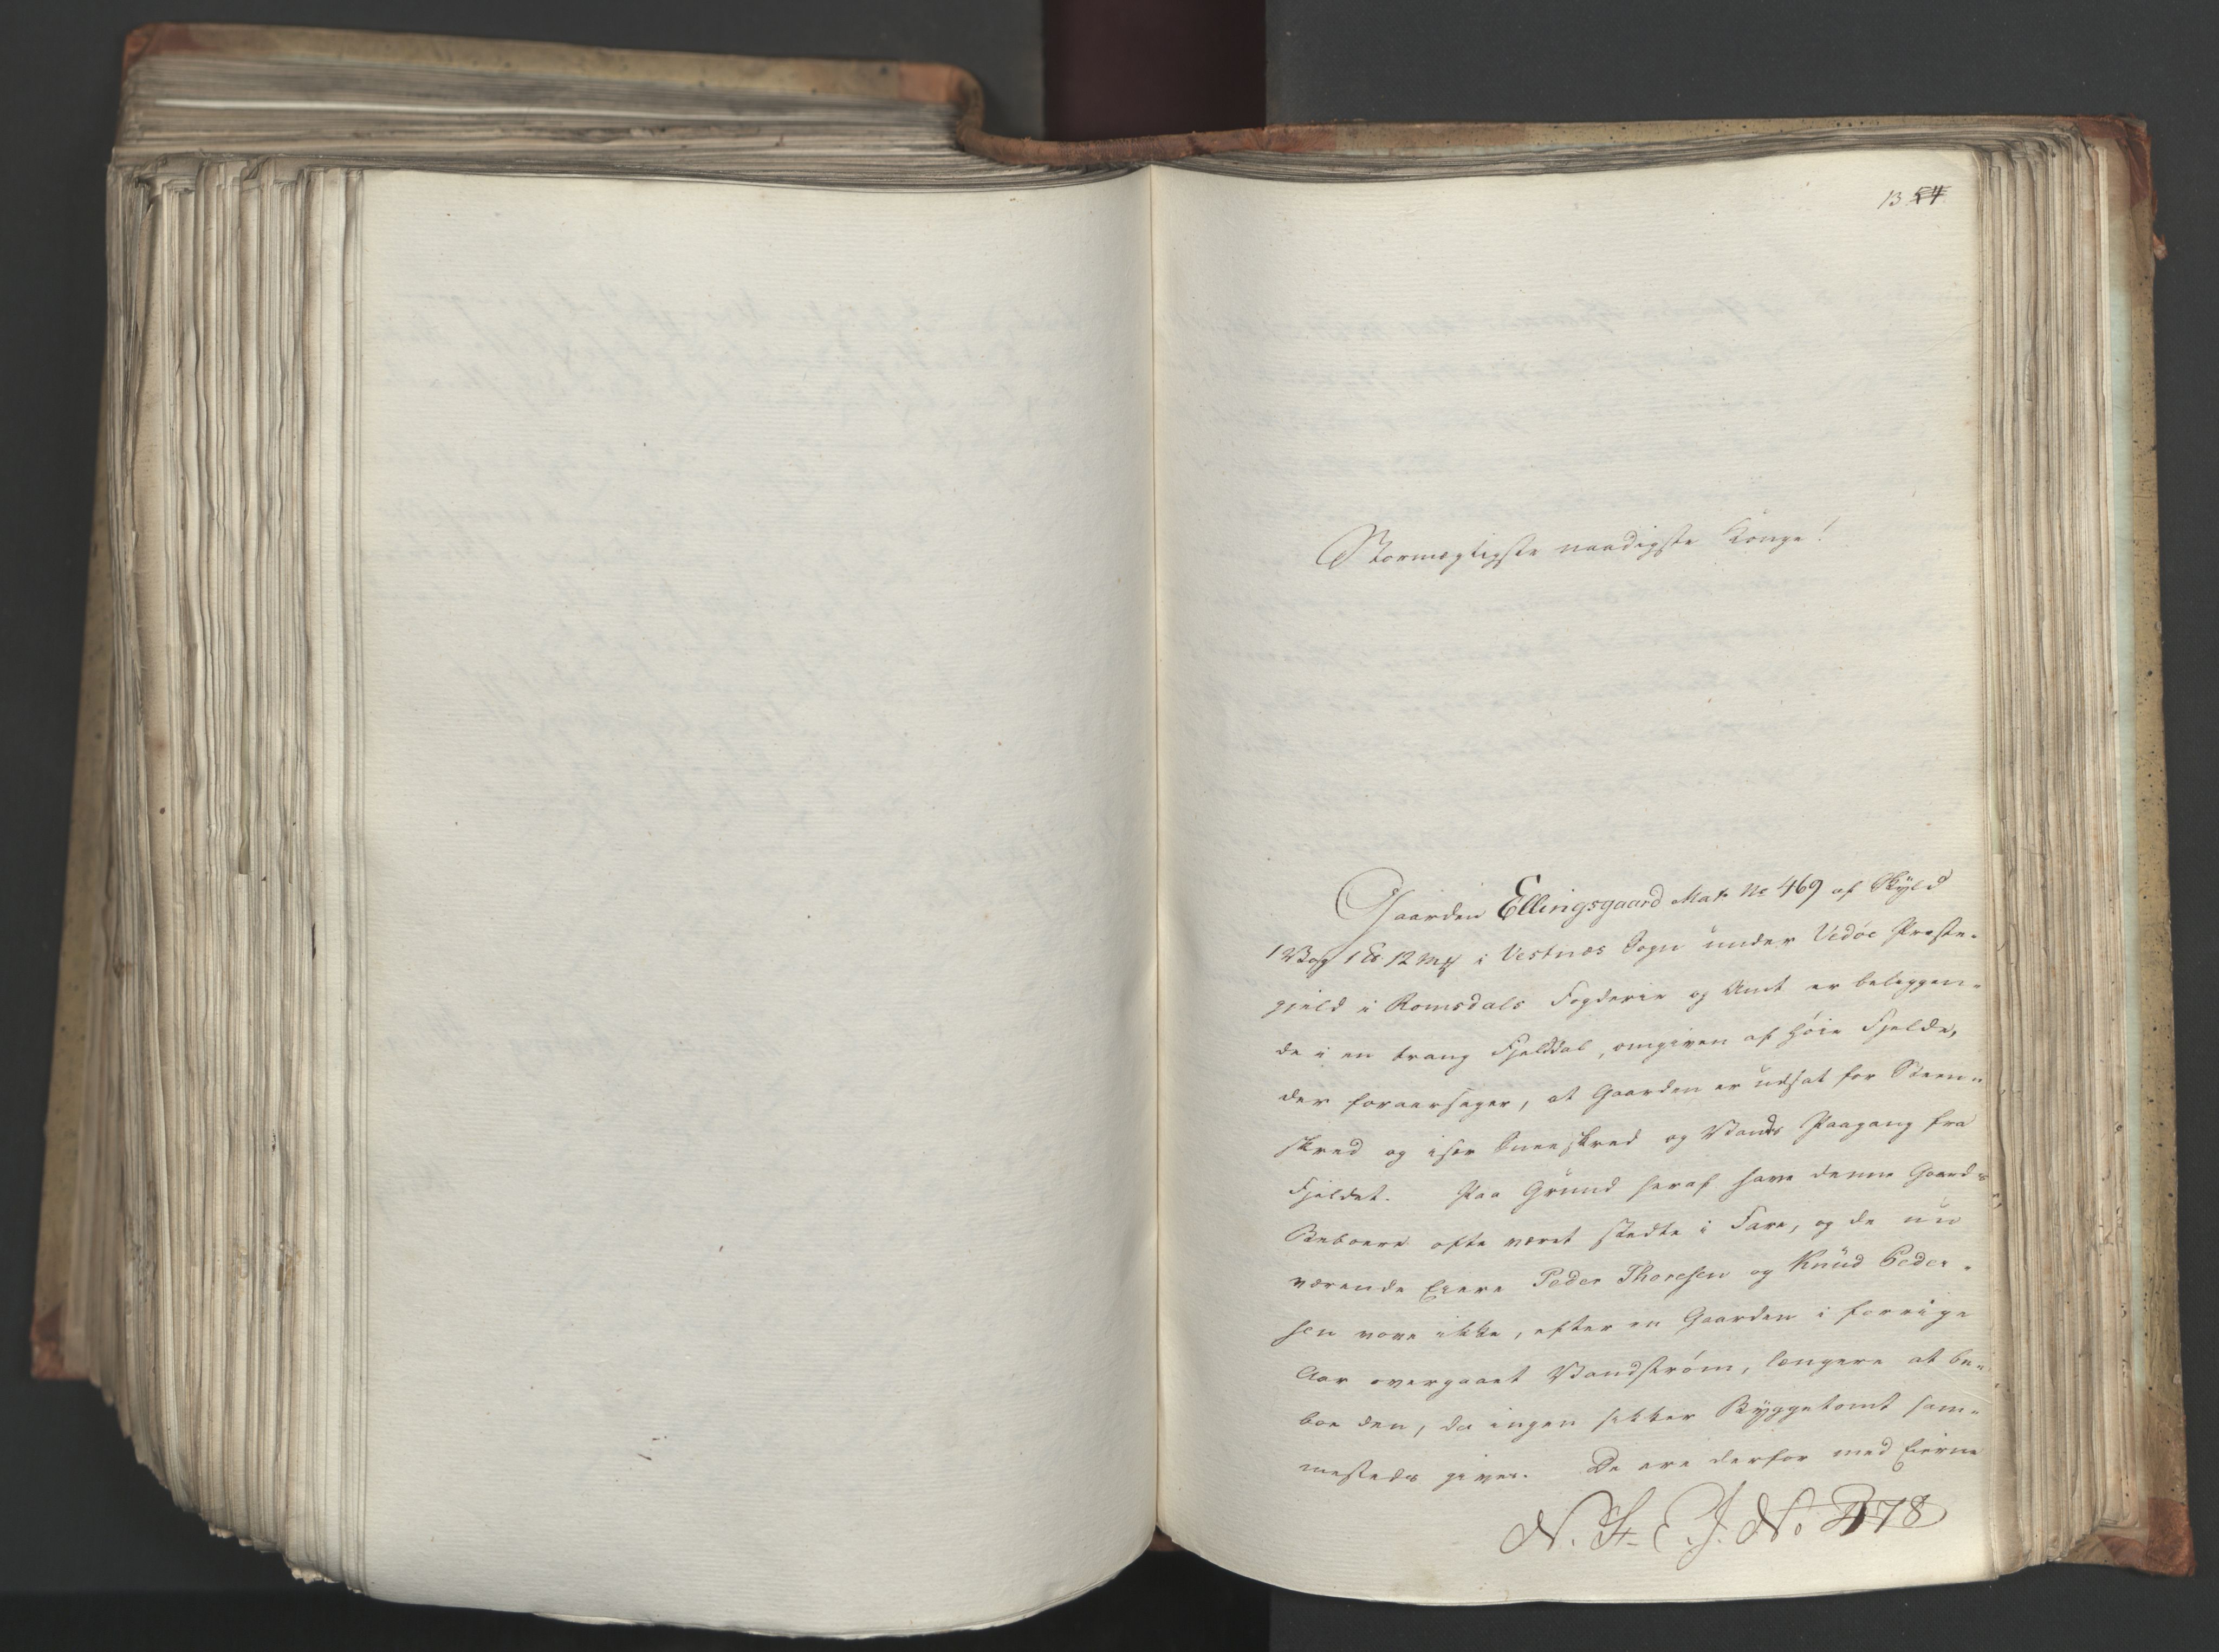 13
Stormægtigste naadigste Konge!
Gaarden Ellingsgaard Mat. No 469 af Skyld
1 Vog 1 12 i Vestnæs Sogn under Vedøe Præste-
gjeld i Romsdals Fogderie og Amt er beleggen-
de i en trang Fjelddal, omgiven af høie Fjelde,
der foraarsager, at Gaarden er udsat for Steen-
skred og især Sneeskred og Vands Paagang fra
Fjeldet. Paa Grund heraf have denne Gaards
Beboere ofte været stedte i Fare, og de nu
værende Eiere Peder Thoresen og Knud Peder-
sen vove ikke, efter en Gaarden i forrige
Aar overgaaet Vandstrøm, længere at be-
boe den, da ingen sikker Byggetomt sam-
mesteds gives. De ere derfor med Eierne
N. St. E. J. No 478